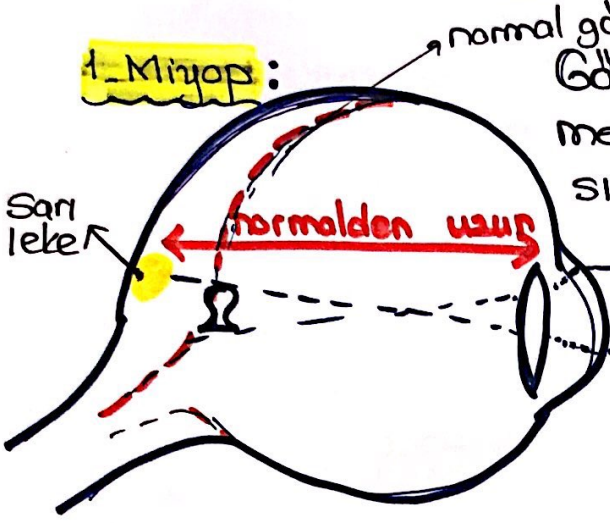 1_Miyop:
normal gö
Gö
me
sı
Sarı
leke
normalden uzun